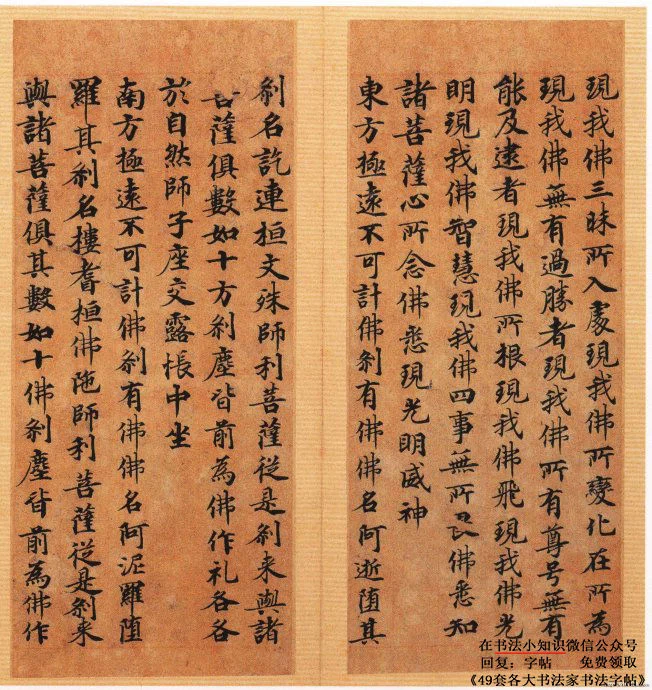 現我佛三昧所入處現我佛所變化在所為
現我佛無有過勝者現我佛所有尊号無有
能及逮者現我佛所根現我佛飛現我佛光
明現我佛智慧現我佛四事無所畏佛悉知
諸菩薩心所念佛悉現光明威神
東方極遠不可計佛刹有佛佛名阿逝墮其
刹名訖連桓文殊師利菩薩從是刹来與諸
菩薩俱數如十方刹塵皆前為佛作礼各各
於自然師子座交露帳中坐
南方極遠不可計佛刹有佛佛名阿泥羅墮
羅其刹名樓耆桓佛陁師利菩薩從是刹来
與諸菩薩俱其數如十佛刹塵皆前為佛作
在书法小知识微信公众号
回复：字帖 免费领取
《49套各大书法家书法字帖》